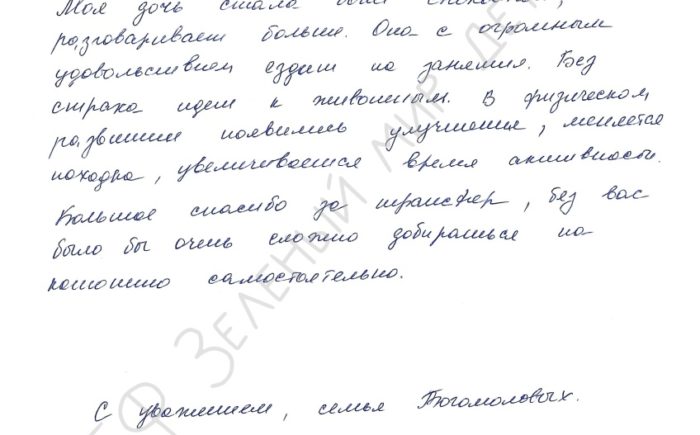 Моя дочь стала более спокойной,
разговаривает больше. Она с огромным
удовольствием ездит на занятия. Без
страха идет к животным. В физическом
развитии появились улучшения, меняется
походка, увеличивается время активности.
Большое спасибо за трансфер, без вас
было бы очень сложно добираться на
конюшню самостоятельно.
С уважением, семья Богомоловых.
БФ ЗЕЛЕНЫЙ МИР ДЕ